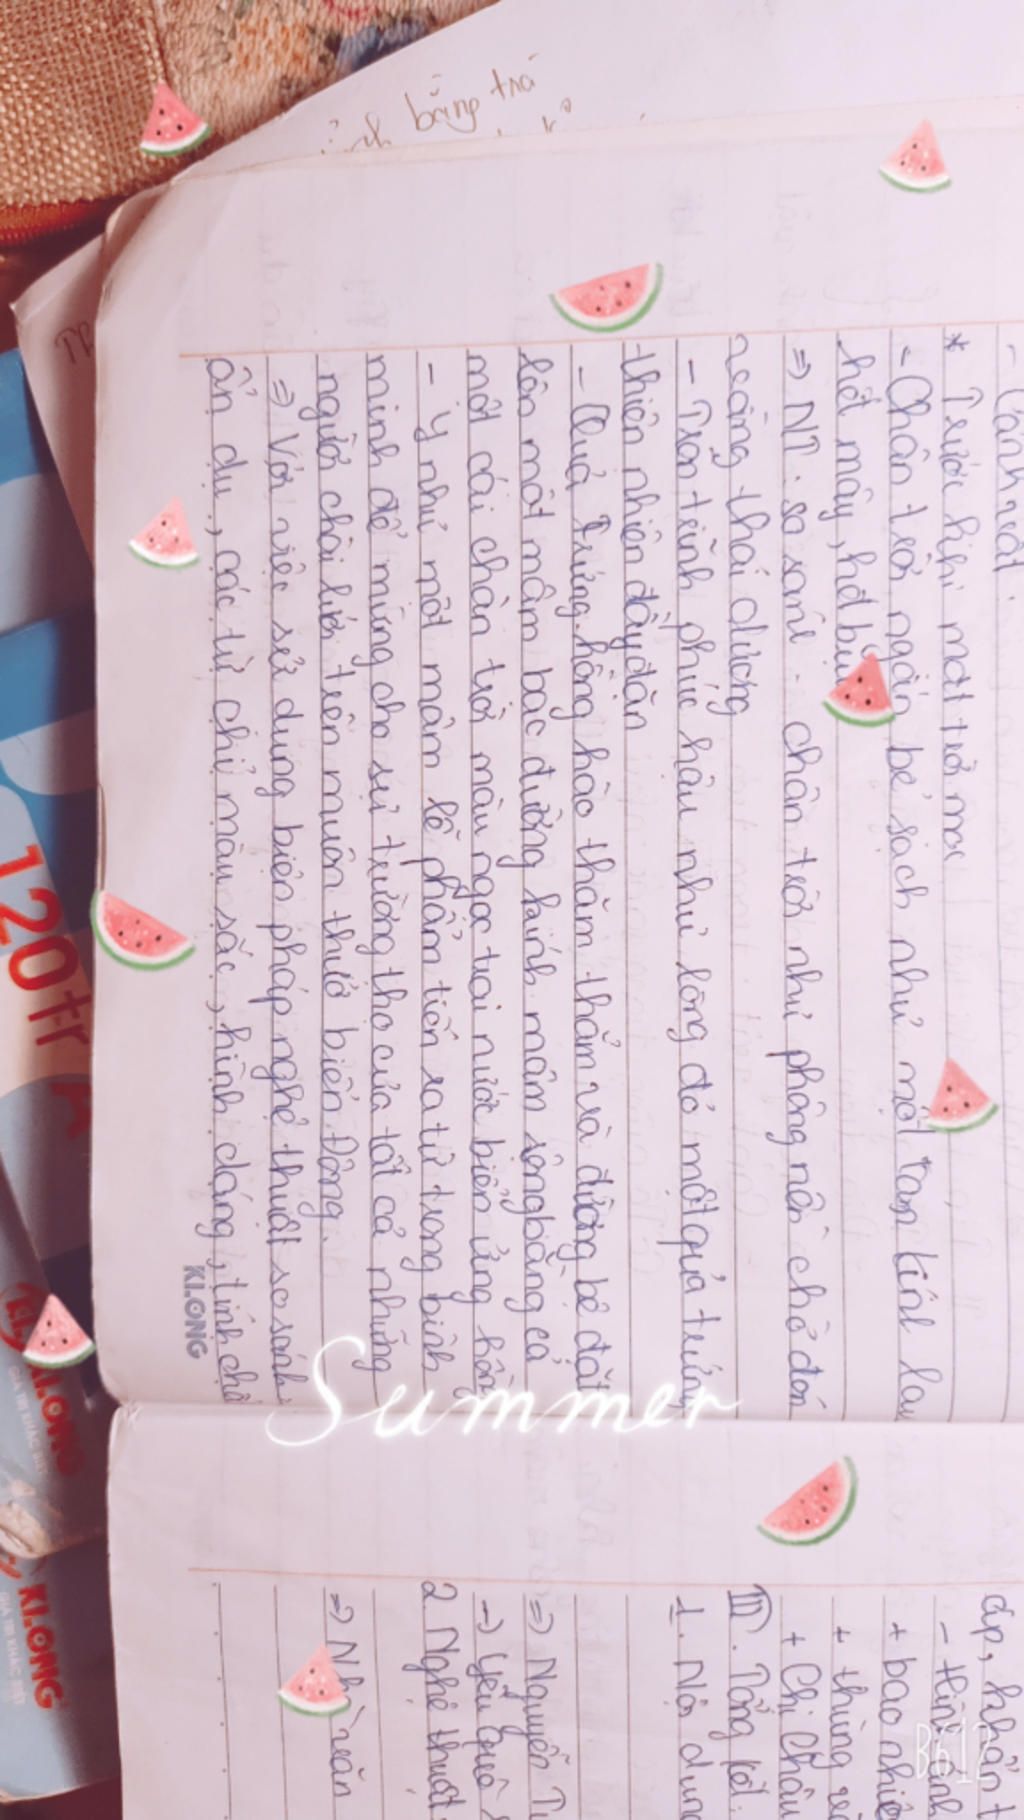 bằng trá
- Cảnh
* Trước khi mặt trời mọc
- Chân trời ngấn bể sạch như một tấm kính lau
hết mây, hết bụi
=> NT: so sánh - chân trời như phông nền chờ đón
trạng thái dương
- Tròn trĩnh phúc hậu như lòng đỏ một quả trứng
thiên nhiên đầy đặn
- Quả trứng hồng hào thăm thẳm và đường bệ đặt
lên một mâm bạc đường kính mâm rộng bằng cả
một cái chân trời màu ngọc trai nước biển ửng hồn
- Y như một mâm lễ phẩm tiến ra từ trong bình
minh để mừng cho sự trường thọ của tất cả những
người chài lưới trên muôn thuở biển Đông.
=> Với việc sử dụng biện pháp nghệ thuật so sánh,
ẩn dụ, các từ chỉ màu sắc, hình dáng, tính chấ
KLONG
Summer
+ bao nhiê
+ thùng
+ Chị Châu
III. Tổng kết
1. Nội dung
=> Nguyễn Tu
-> yêu quê
2 Nghệ thuật
=> Nhà văn
120tr
KLONG
GIÁ TRỊ KHÁC BIỆT
KLONG
GIÁ TRỊ KHÁC BIỆT
B612